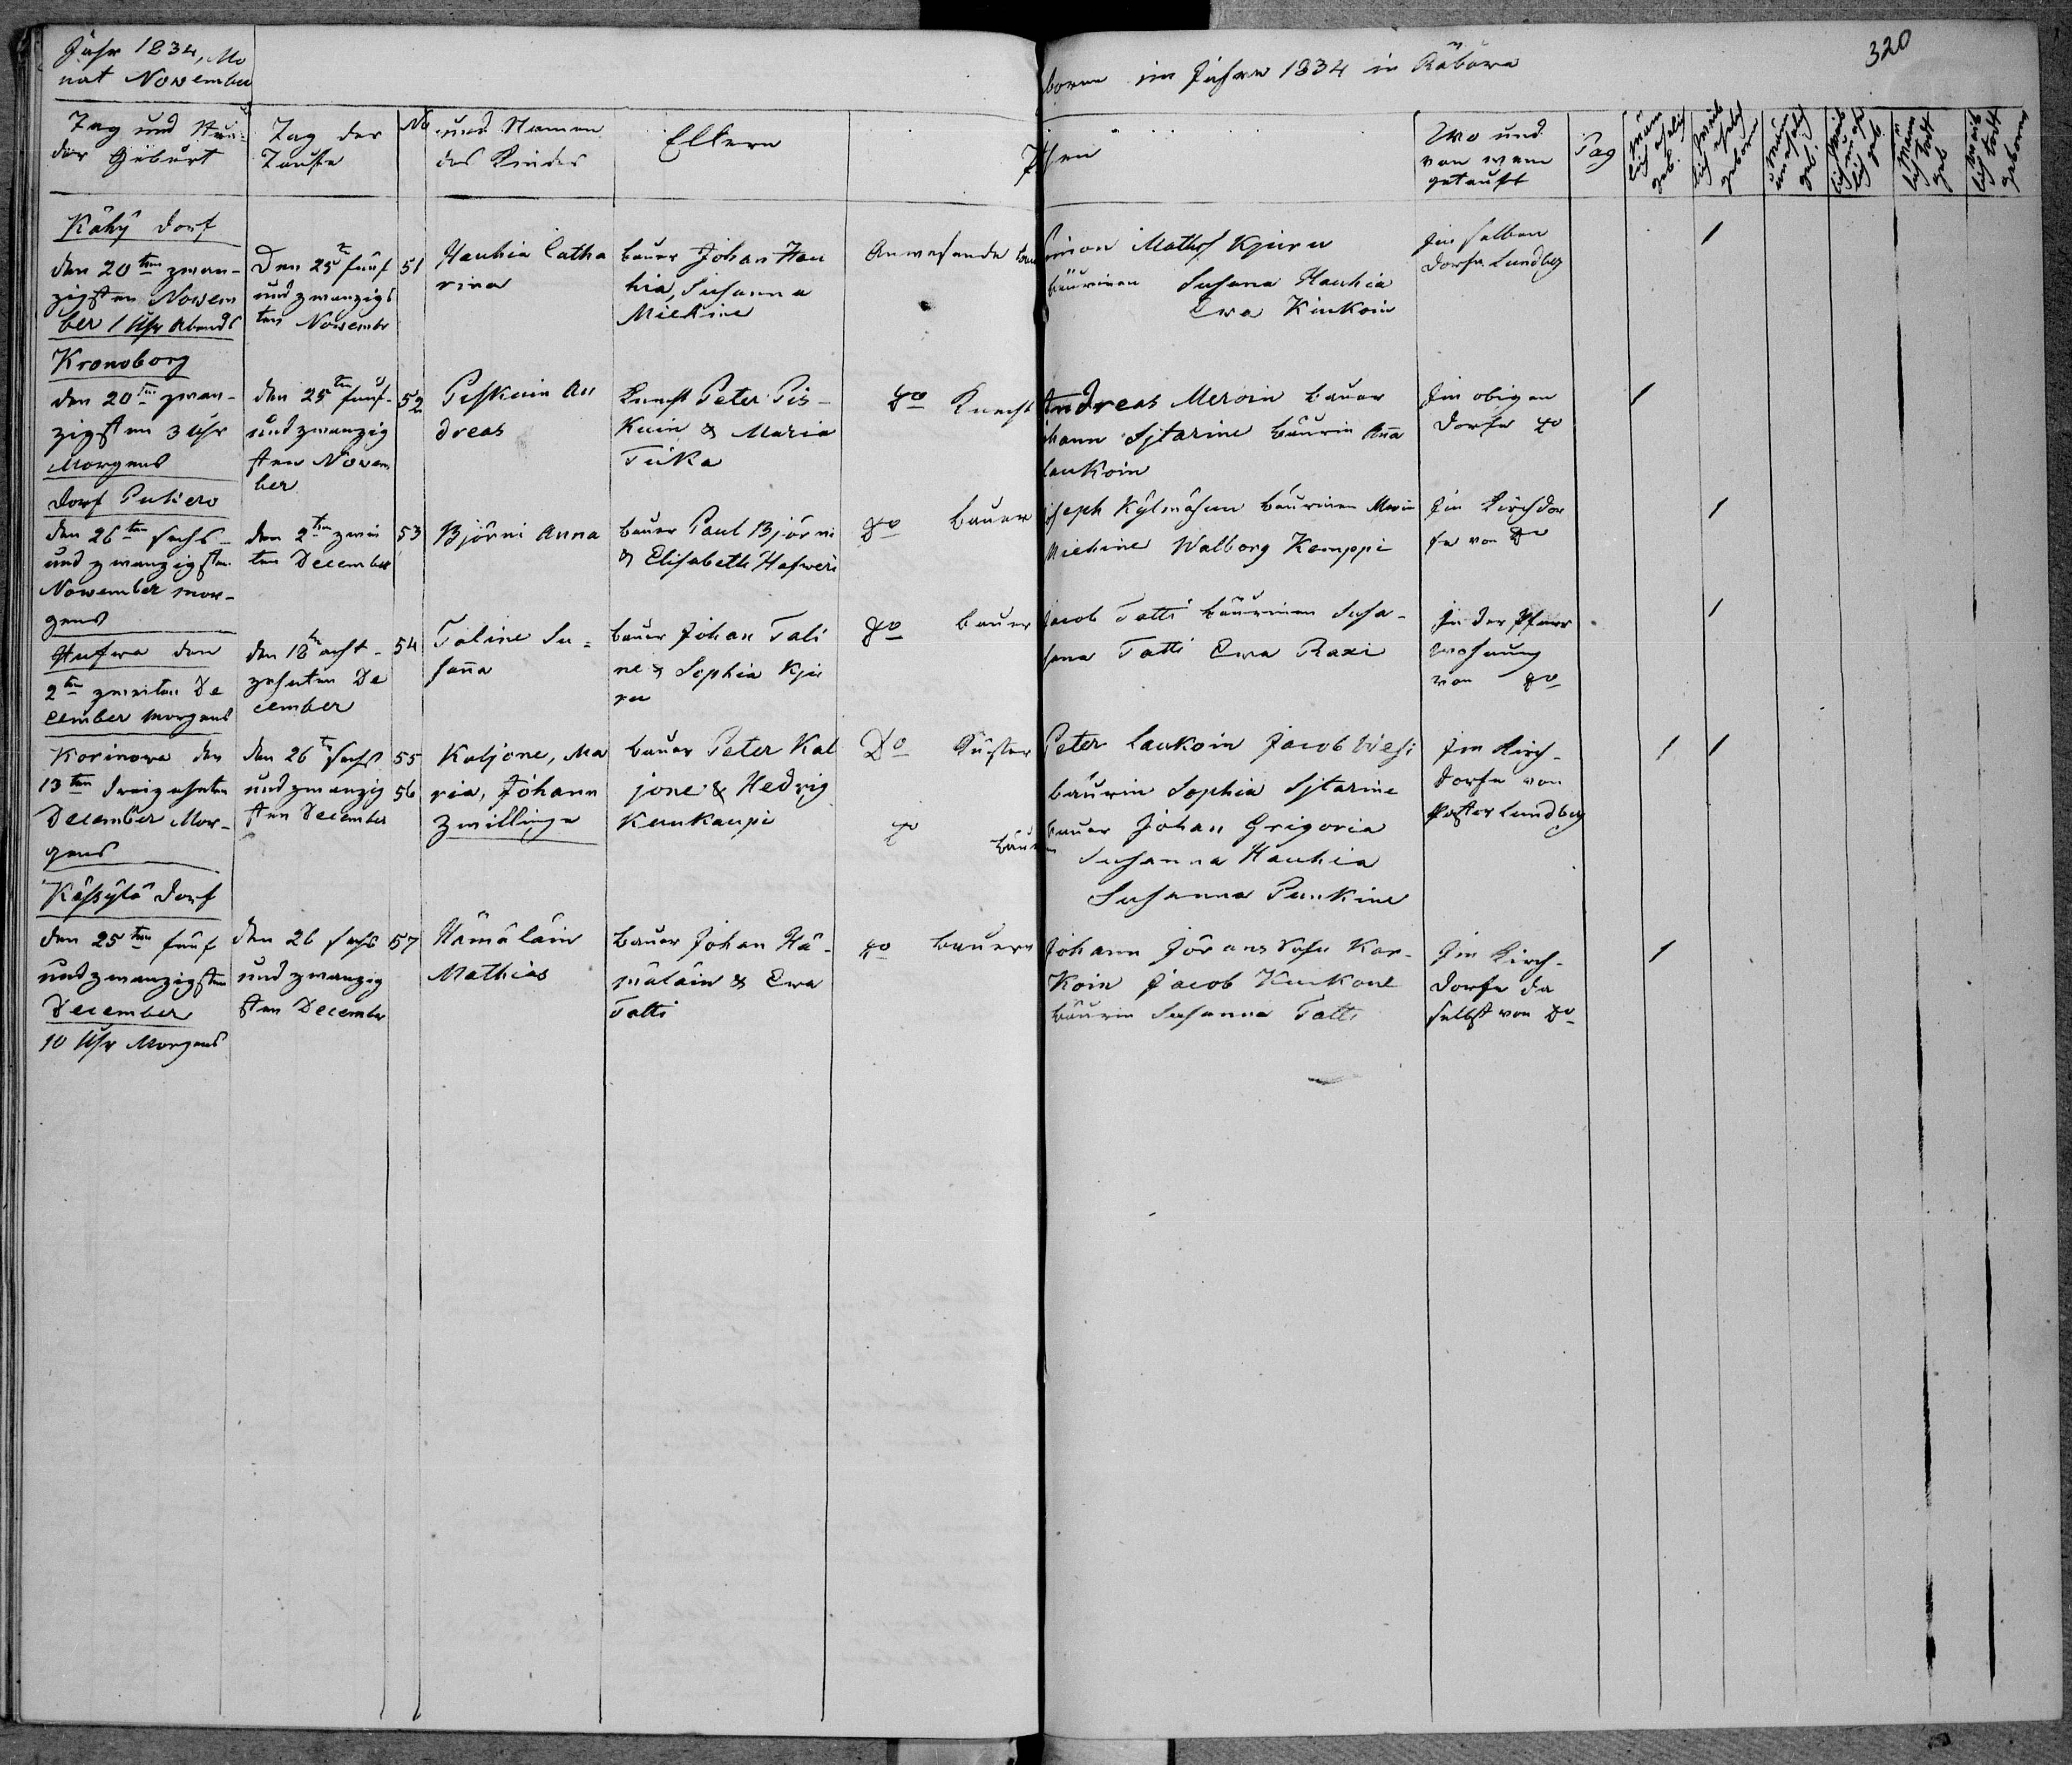 Jahr 1834, Mo
nat November
boren im Jahre 1834 in Räbävä
320
Tag und Stun-
der Geburt
Tag der
Taufe
No
und Namen
des Kindes
Eltern
Wo und
von wem
getauft
Pag
Män
lich ehelich
geb.
Weib
lich ehelich
geboren
Män
unehelich
geb.
Weib
lich uneh
lich geb.
Män
lich todt
geb
Weib
lich todt
geboren
Kähÿ Dorf
den 20ten zwan-
zigsten Novem
ber 1 Uhr Abends
Den 25 fünf
und zwanzigs
ten Novembr
51
Hauhia Catha
rina
Bauer Johan Hau
hia, Susanna
Miehine
Anwesende
Simon Maths Kjuru
Bäurinen Susana Hauhia
Ewa Kiukoin
Im selben
Dorfe Lundberg
1
Kronoborg
den 20ten zwan-
zigsten 3 Uhr
Morgens
den 25ten fünf-
und zwanzig
sten Novem
ber
52
Piskuin An
dreas
Knecht Peter Pis-
kuin & Maria
Tuika
Do Knecht
Andreas Meroin Bauer
Johann Sjtarine Bäurin Aña
Laukoin
Im obigen
Dorfe Do
1
Dorf Putiero
den 26ten sechs-
und zwanzigsten
November mor-
gens
den 2ten zwei
ten December
53
Björni Anna
Bauer Paul Björni
& Elisabeth Hafweri
Do Bauer
Joseph Kÿlmähun Bäurinen Maria
Miehine Walborg Kemppi
Im Kirchdor
fe von Do
1
Hufwa den
2ten zweiten De
cember Morgens
den 18ten acht-
zehnten De
cember
54
Taline Su=
saña
Bauer Johan Tali
ne & Sophia Kju
ru
Do Bauer
Jacob Tatti Bäurinen Susa-
sana Tatti Ewa Raxi
In der Pfarr
wohnung
von Do
1
Korinowa den
13ten dreizehnten
December Mor-
gens
den 26ten sechs
und zwanzig
sten December
55
56
Kaljone, Ma
ria, Johann
Zwillinge
Bauer Peter Kal
jone & Hedvig
Kaukaupi
Do Küster
Peter Laukoin Jacob Wesi
Bäurin Sophia Sjtarine
Do
Bauer Johan Grigoria
Bäurin Susanna Hauhia
Susanna Punkine
Im Kirch-
dorfe von
Pastor Lundberg
1 1
Käsÿlä Dorf
den 25ten fünf
und zwanzigsten
December
10 Uhr Morgens
den 26 sechs
und zwanzig
sten December
57
Hämäläin
Mathias
Bauer Johan Hä-
mäläin & Ewa
Tatti
Do Bauern
Johann Jörans Sohn Kar-
koin Jacob Kuukone
Bäurin Susanna Tatti
Im Kirch-
dorfe da
selbst von Do
1